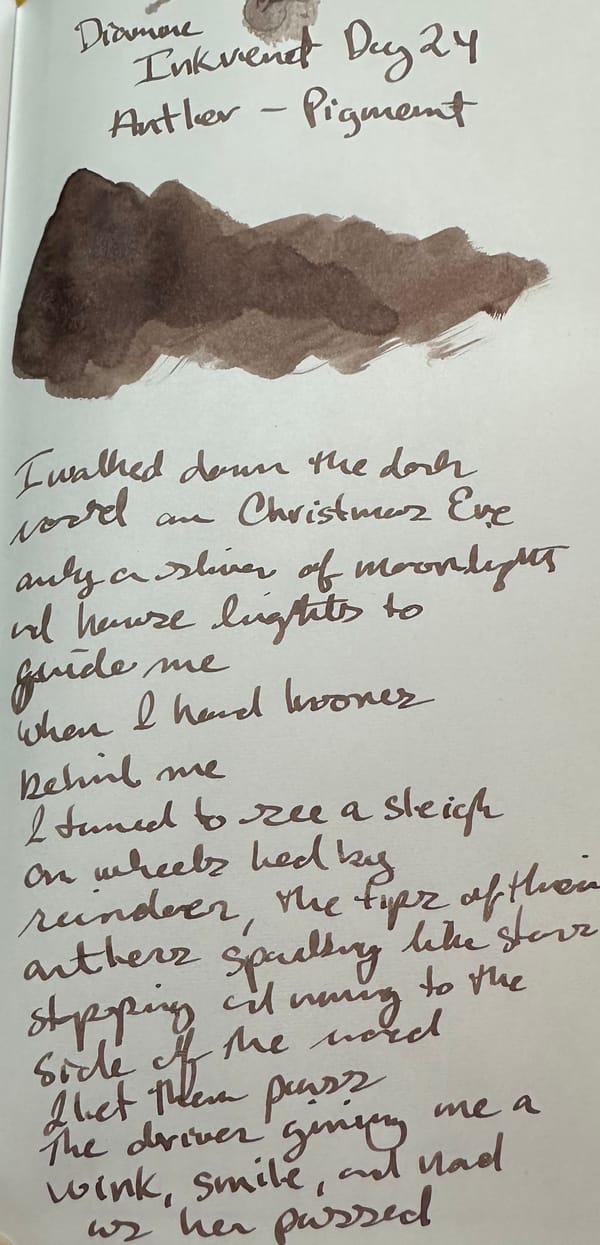 Diamine
Inkvent Day 24
Antler - Pigment
I walked down the dark
road on Christmas Eve
only a sliver of moonlight
and house lights to
guide me
When I heard hooves
behind me
I turned to see a sleigh
on wheels led by
reindeer, the tips of their
antlers sparkling like stars
stepping and moving to the
side of the road
I let them pass
The driver giving me a
wink, smile, and nod
as he passed